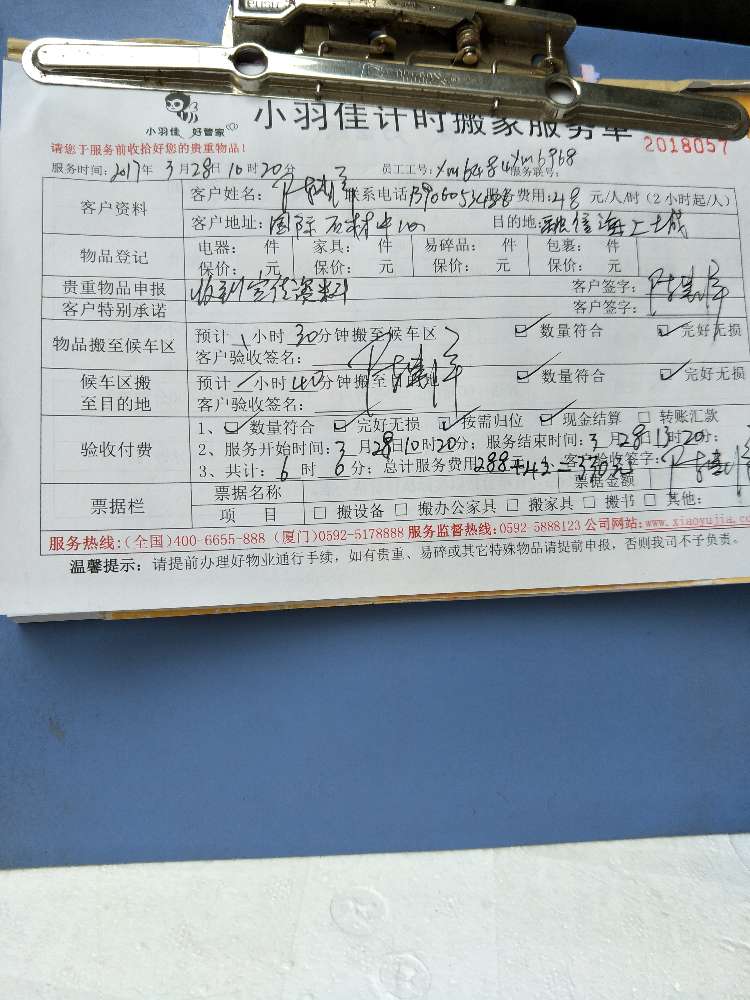 小羽佳 好管家
小羽佳计时搬家服务单
请您于服务前收拾好您的贵重物品!
2018057
服务时间: 2017年 3月28日10时20分 员工工号: xm6484 xm6968 服务联号:
客户资料
客户姓名: 联系电话 服务费用:48 元/人/时 (2小时起/人)
客户地址: 国际石材中心 目的地: 融信海上城
物品登记
电器: 件 家具: 件 易碎品: 件 包裹: 件
保价: 元 保价: 元 保价: 元 保价: 元
贵重物品申报 收到宣传资料 客户签字:
客户特别承诺 客户签字:
物品搬至候车区
预计 \ 小时 30分钟搬至候车区 数量符合 完好无损
客户验收签名:
候车区搬至目的地
预计 一 小时 40分钟搬至目的地 数量符合 完好无损
客户验收签名:
验收付费
1、 数量符合 完好无损 按需归位 现金结算 转账汇款
2、服务开始时间: 3月28日10时20分; 服务结束时间: 3月28日13时20分;
3、共计: 6 时 6分; 总计服务费用288元+43=330元 客户验收签字:
票据栏
票据名称 票据金额
项 目 搬设备 搬办公家具 搬家具 搬书 其他:
服务热线:(全国)400-6655-888 (厦门)0592-5178888 服务监督热线:0592-5888123 公司网站:www.xiaoyujia.co
温馨提示: 请提前办理好物业通行手续, 如有贵重、易碎或其它特殊物品请提前申报, 否则我司不予负责。